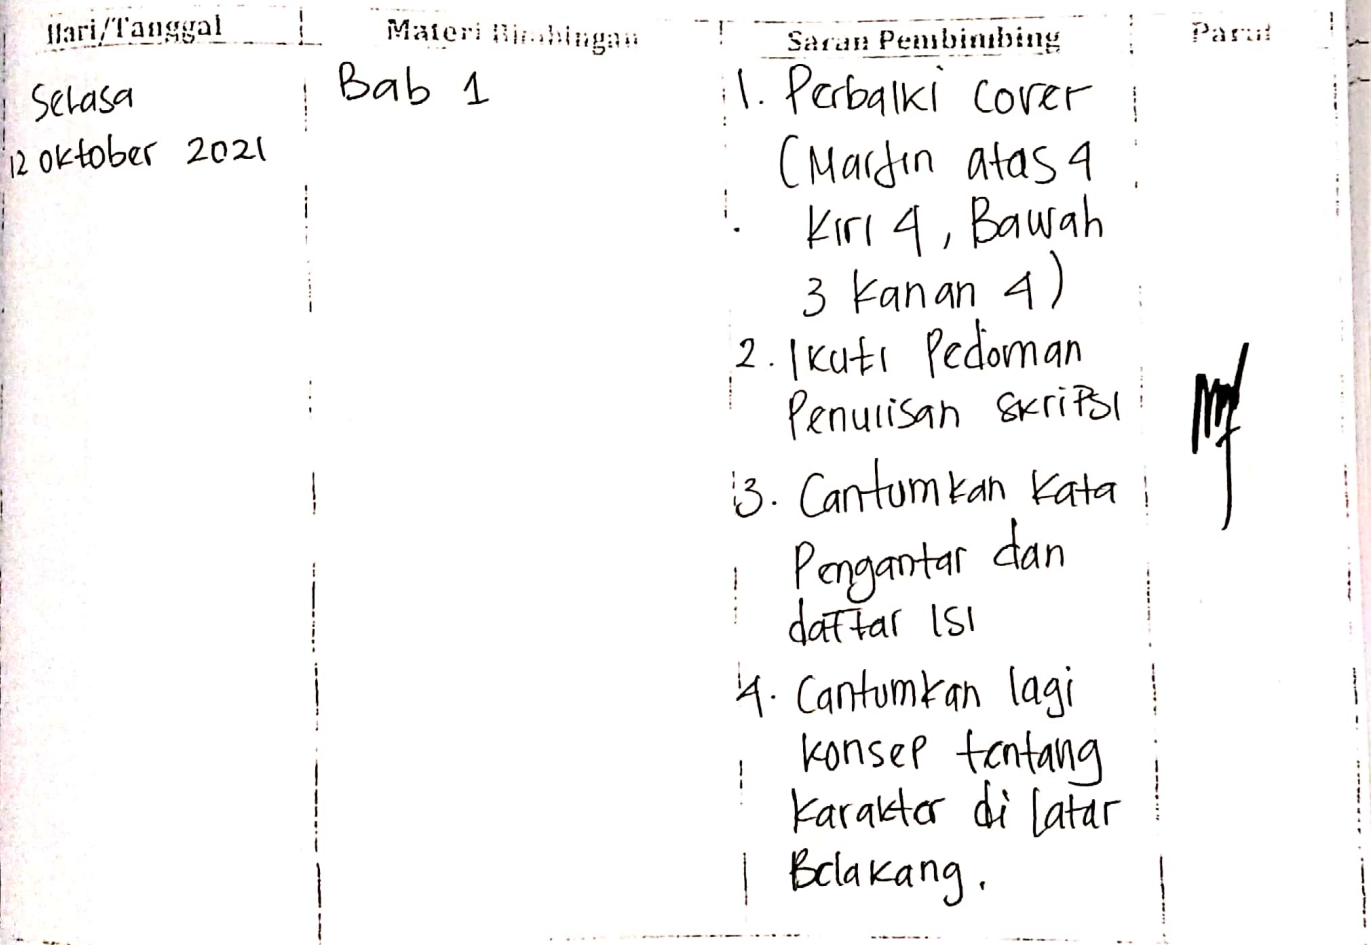 Hari/Tanggal
Materi Bimbingan
Saran Pembimbing
Paraf
Selasa
12 oktober 2021
Bab 1
1. Perbaiki cover
(Marjin atas 4
Kiri 4, Bawah
3 kanan 4)
2. Ikuti Pedoman
Penulisan skripsi
3. Cantumkan kata
Pengantar dan
daftar isi
4. Cantumkan lagi
konsep tentang
karakter di latar
Belakang.